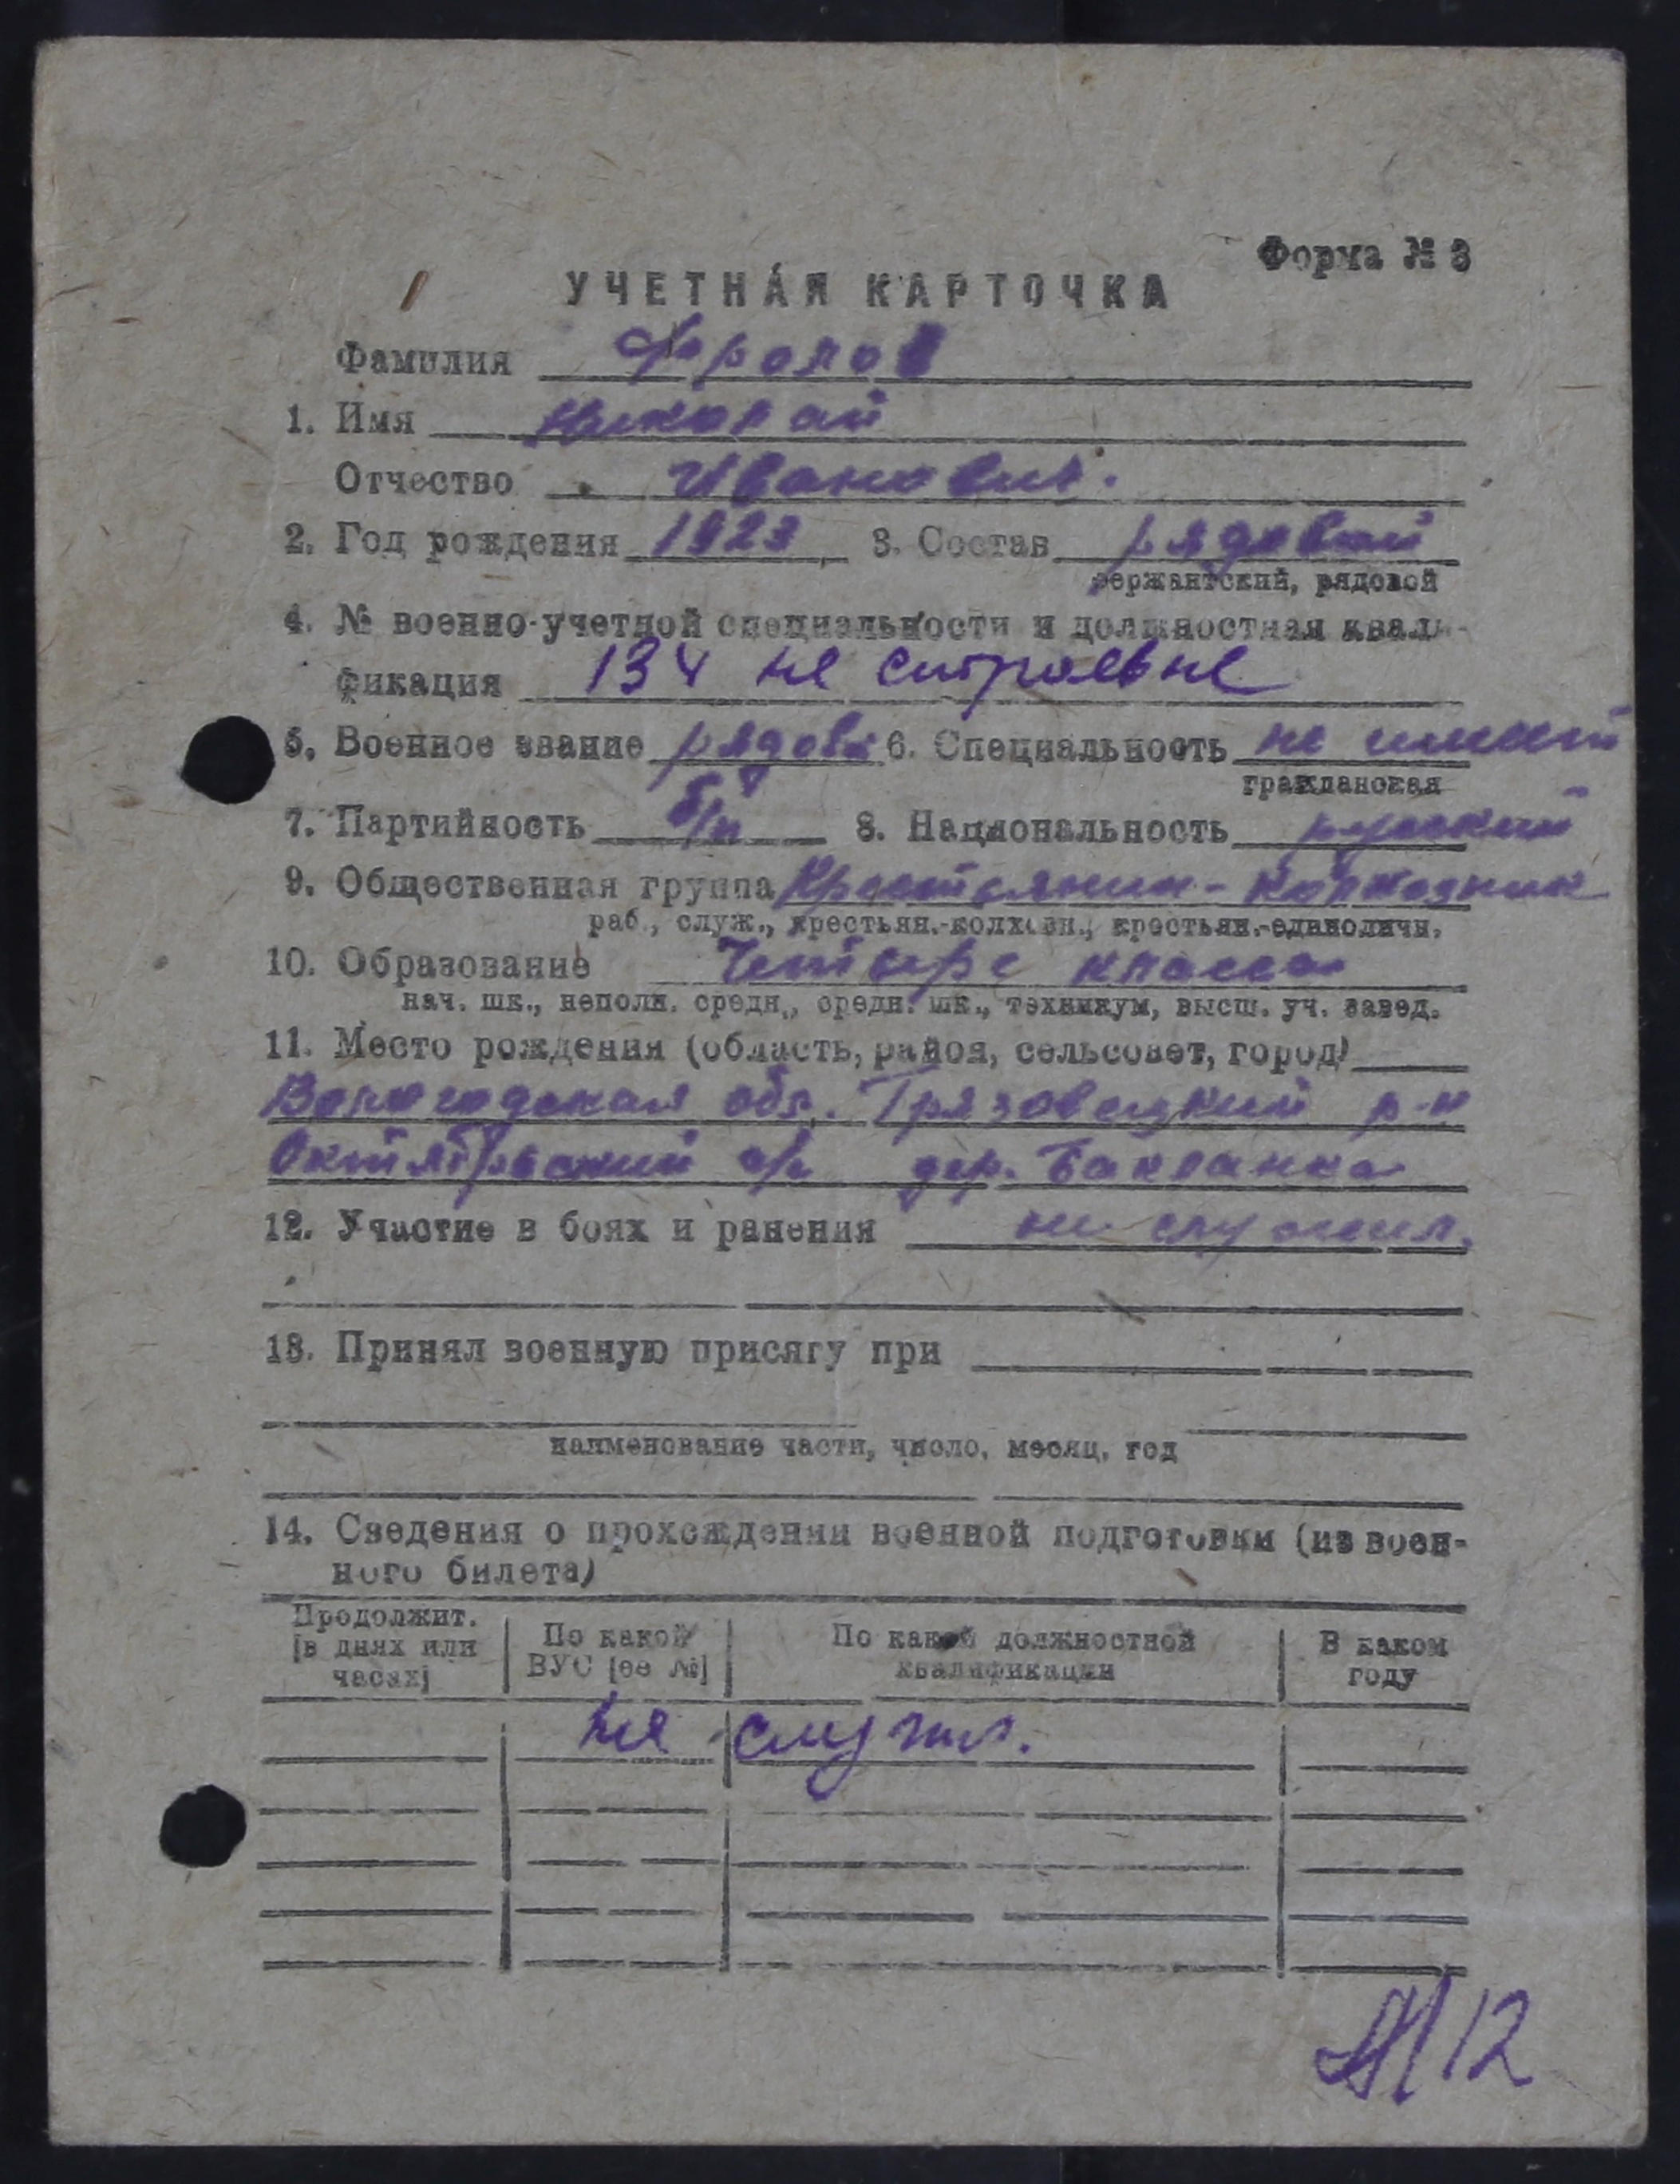 Форма № 3
УЧЕТНАЯ КАРТОЧКА
Фамилия Фролов
1. Имя Николай
Отчество Иванович.
2. Год рождения 1923 3. Состав рядовой
сержантский, рядовой
4. № военно-учетной специальности и должностная квали-
фикация 134 не строевые
5. Военное звание рядовой 6. Специальность не имеет
гражданская
7. Партийность б/п 8. Национальность русский
9. Общественная группа Крестьянин-колхозник
раб., служ., крестьян.-колхозн., крестьян.-единоличн.
10. Образование Четыре класса
нач. шк., неполн. средн., средн. шк., техникум, высш. уч. завед.
11. Место рождения (область, район, сельсовет, город)
Вологодская обл. Грязовецкий р-н
Октябрьский с/с дер. Бакланка
12. Участие в боях и ранения не служил.
13. Принял военную присягу при
наименование части, число, месяц, год
14. Сведения о прохождении военной подготовки (из воен-
ного билета)
Продолжит. [в днях или часах] По какой ВУС [ее №] По какой должностной квалификации В каком году
не служил.
12